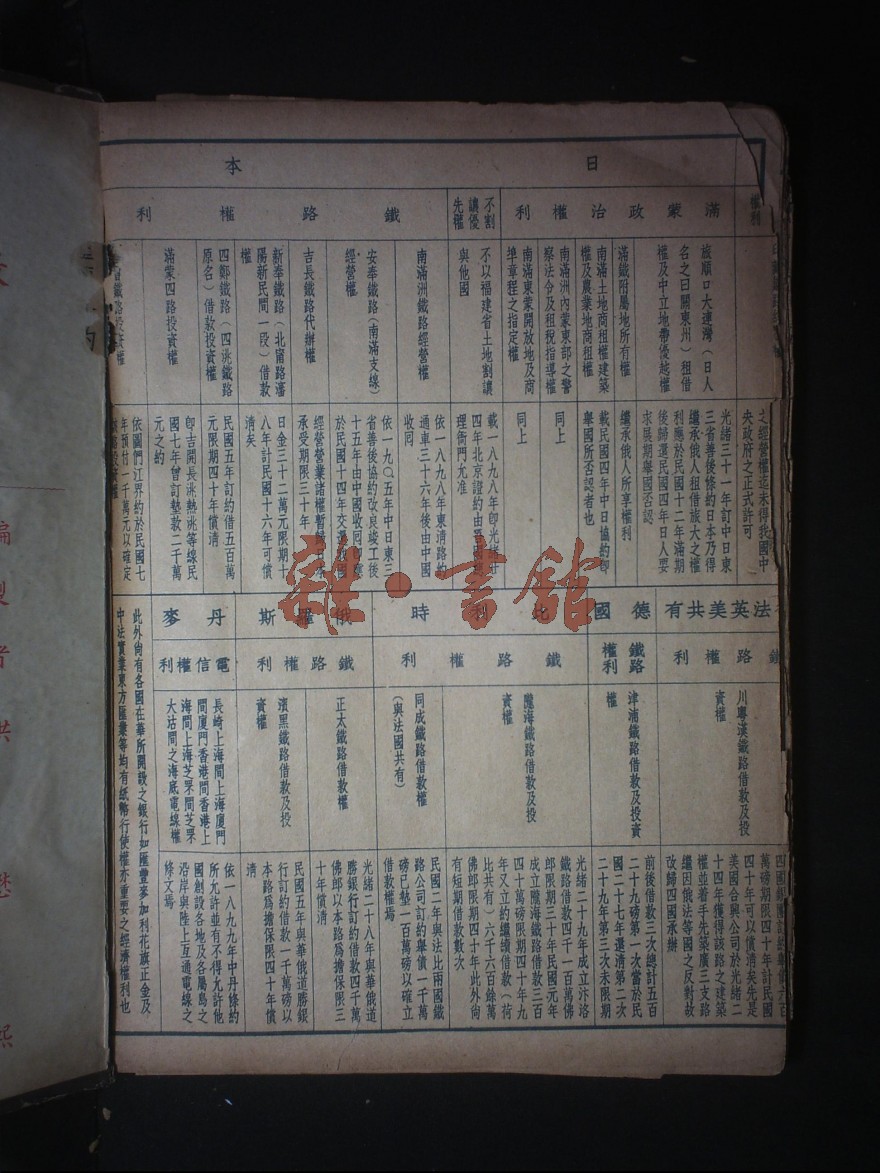 日本
權利
滿蒙政治權利
不割
讓優
先權
鐵路權利
旅順口大連灣（日人
名之曰關東州）租借
權及中立地帶優越權
滿鐵附屬地所有權
南滿土地商租權建築
權及農業地商租權
南滿洲內蒙東部之警
察法令及租稅指導權
南滿東蒙開放地及商
埠章程之指定權
不以福建省土地割讓
與他國
南滿洲鐵路經營權
安奉鐵路（南滿支線）
經營權
吉長鐵路代辦權
新奉鐵路（北甯路瀋
陽新民間一段）借款
權
四鄭鐵路（四洮鐵路
原名）借款投資權
滿蒙四路投資權
鐵路投資權
之經營權迄未得我國中
央政府之正式許可
光緒三十一年訂中日東
三省善後條約日本乃得
繼承俄人租借旅大之權
利應於民國十二年滿期
後歸還民國四年日人要
求展期舉國否認
繼承俄人所享權利
載民國四年中日協約卽
舉國所否認者也
同上
同上
載一八九八年卽光緒廿
四年北京證約由
理衙門允准
依一八九八年東淸路約
通車三十六年後由中國
收囘
依一九〇五年中日東三
省善後協約改良竣工後
十五年由中國收囘卽應
於民國十四年交還我國
經營營業諸權暫歸日本
承受期限三十年
日金三十二萬元限期十
八年計民國十六年可償
淸矣
民國五年訂約借五百萬
元限期四十年償淸
卽吉開長洮熱洮等線民
國七年曾訂墊款二千萬
元之約
依圖們江界約於民國七
年預付一千萬元以確定
法英美共有
德國
比利時
俄羅斯
丹麥
鐵路權利
鐵路
權利
鐵路權利
鐵路權利
電信權利
川粵漢鐵路借款及投
資權
津浦鐵路借款及投資
權
隴海鐵路借款及投
資權
同成鐵路借款權
（與法國共有）
正太鐵路借款權
濱黑鐵路借款及投
資權
長崎上海間上海廈門
間廈門香港間香港上
海間上海芝罘間芝罘
大沽間之海底電線權
四國銀團訂約舉債六百
萬磅期限四十年計民國
四十年可以償淸矣先是
美國合興公司於光緒二
十四年獲得該路之建築
權並着手先築廣三支路
繼因俄法等國之反對故
改歸四國承辦
前後借款三次總計五百
二十九磅第一次當於民
國二十七年還淸第二次
二十九年第三次未限期
光緒二十九年成立汴洛
鐵路借款四千一百萬佛
郎限期三十年民國元年
成立隴海鐵路借款三百
四十萬磅限期四十年九
年又立約繼續借款（荷
比共有）六千六百餘萬
佛郎限期四十年此外尙
有短期借款數次
民國二年與法比兩國鐵
路公司訂約舉債一千萬
磅已墊一百萬磅以確立
借款權焉
光緒二十八年與華俄道
勝銀行訂約借款四千萬
佛郎以本路爲擔保限三
十年償淸
民國五年與華俄道勝銀
行訂約借款一千萬磅以
本路爲擔保限四十年償
淸
依一八九九年中丹條約
所允許並有不得允許他
國創設各地及各屬島之
沿岸與陸上互通電線之
條文焉
此外尙有各國在華所開設之銀行如匯豐麥加利花旗正金及
中法實業東方匯業等均有紙幣行使權亦重要之經濟權利也
雜·書館
編製者洪懋熙